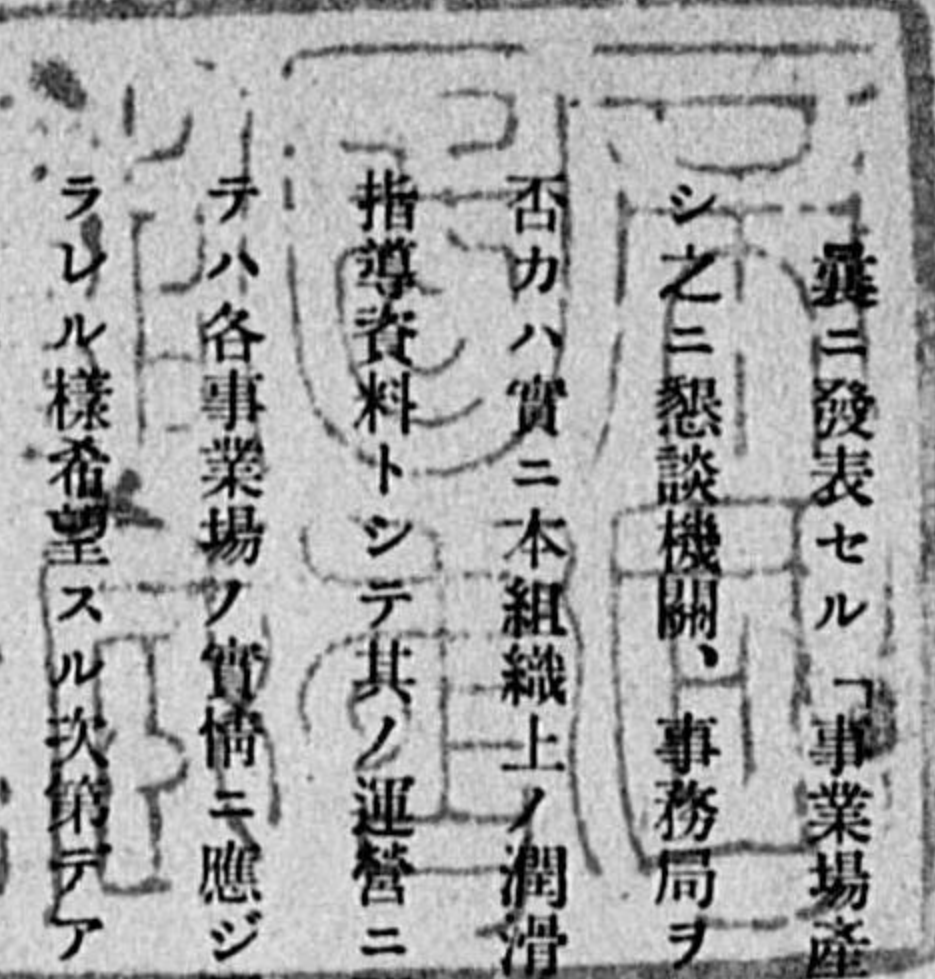 曩ニ發表セル「事業場產
シ之ニ懇談機關、事務局ヲ
否カハ實ニ本組織上ノ潤滑
指導資料トシテ其ノ運營ニ
テハ各事業場ノ實情ニ應ジ
ラレル樣希望スル次第デア